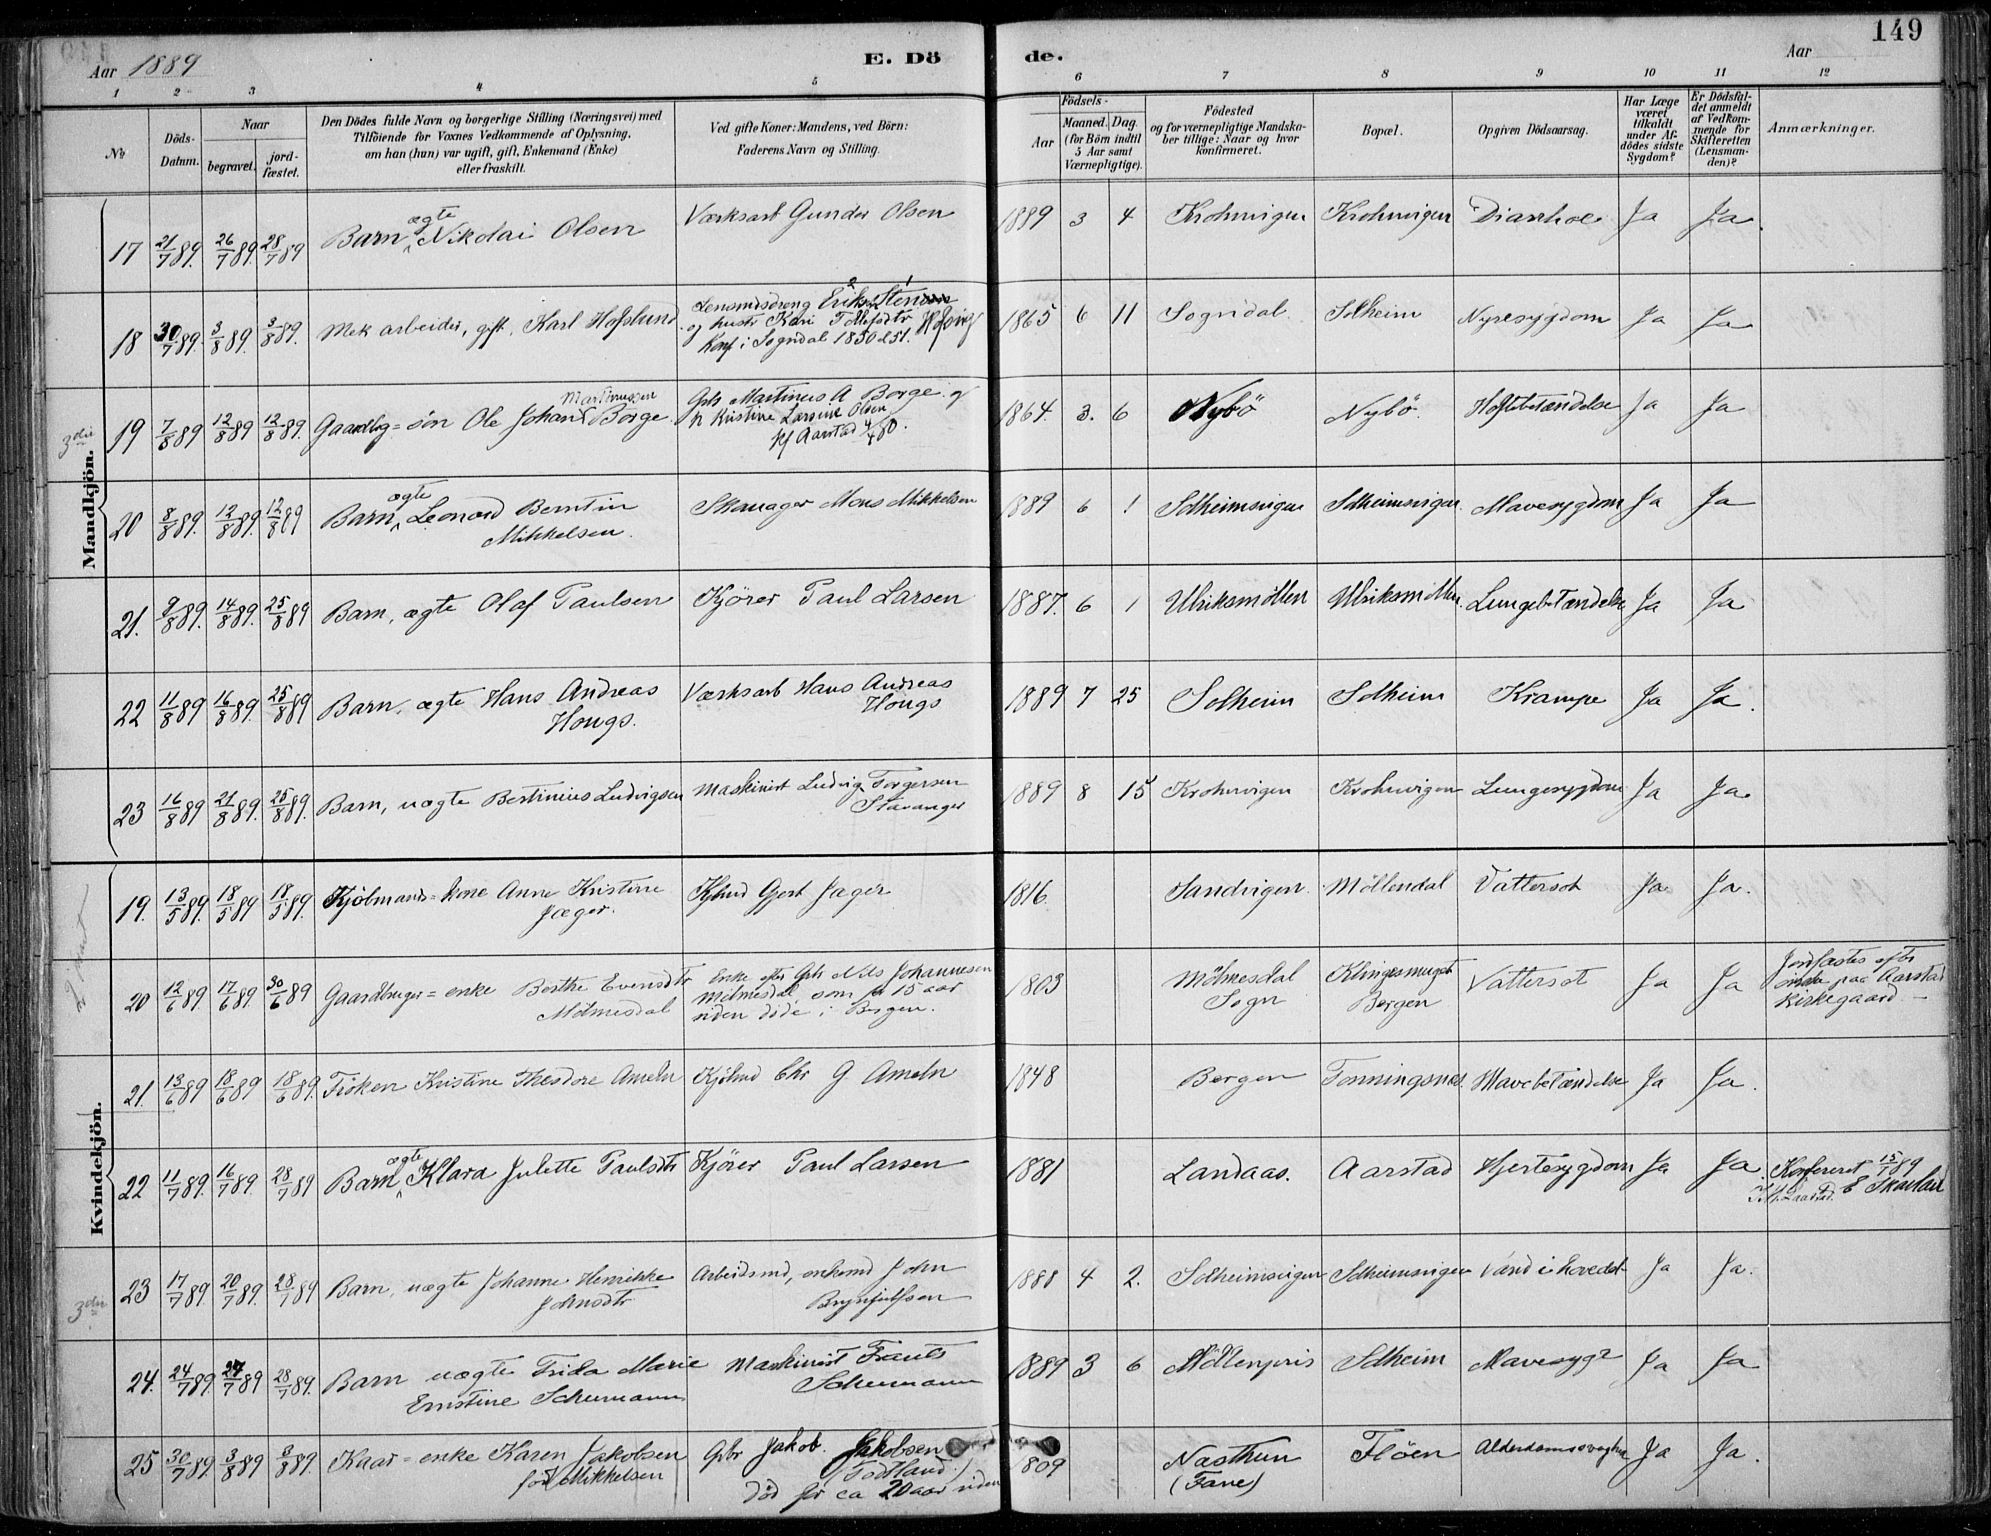 149
Aar 1889
E. Dö
de.
Aar
1 2 3 4 5 6 7 8 9 10 11 12
No
Döds-
Datum.
Naar
begravet.
jord-
fæstet.
Den Dödes fulde Navn og borgerlige Stilling (Næringsvei) med
Tilföiende for Voxnes Vedkommende af Oplysning,
om han (hun) var ugift, gift, Enkemand (Enke)
eller fraskilt.
Ved gifte Koner: Mandens, ved Börn:
Faderens Navn og Stilling.
Födsels-
Aar
Maaned. Dag.
(for Börn indtil
5 Aar samt
Værnepligtige).
Födested
og for værnepligtige Mandska-
ber tillige: Naar og hvor
konfirmeret.
Bopæl.
Opgiven Dödsaarsag.
Har Læge
været
tilkaldt
under Af-
dödes sidste
Sygdom?
Er Dödsfal-
det anmeldt
af Vedkom-
mende for
Skifteretten
(Lensman-
den)?
Anmærkninger.
Mandkjön.
17 21/7 89. 26/7 89. 28/7 89 Barn ægte Nikolai Olsen Værksarb Gunder Olsen 1889 3 4 Krohnvigen Krohnvigen Diarrhoe Ja Ja.
18 30/7 89. 3/8 89. 3/8 89. Mek arbeider, gift, Karl Hofslund Lensmdsdreng Erik Sten
og hustr Kari Tollefsdtr
Konf i Sogndal
1865 6 11 Sogndal Solheim Nyresygdom Ja Ja
3die
19 7/8 89 12/8 89 12/8 89. Gaardbg=sön Ole Johan Martinussen Borge Gbr Martinus A Borge og
h Kristine Larsine Olsen
kf Aarstad 4/4 80.
1864. 3. 6 Nybö Nybö. Hoftebetændelse Ja Ja
20 8/8 89. 12/8 89. 12/8 89 Barn ægte Leonard Berntin
Mikkelsen.
Skomager Mons Mikkelsen 1889 6 1 Solheimsvigen Solheimsvigen Mavesygdom Ja Ja
21. 9/8 89. 14/8 89. 25/8 89 Barn, ægte Olaf Paulsen Kjörer Paul Larsen 1887. 6 1 Ulriksmöllen Ulriksmöllen. Lungebetændelse Ja Ja
22 11/8 89 16/8 89. 25/8 89 Barn, ægte Hans Andreas
Hougs.
Værksarb Hans Andreas
Hougs
1889 7 25 Solheim Solheim Krampe Ja Ja.
23 16/8 89 21/8 89. 25/8 89. Barn, uægte Bertinius Ludvigsen Maskinist Ludvig Torgersen
Stavanger
1889 8 15 Krohnvigen Krohnvigen Lungesygdom Ja Ja.
Kvindekjön.
19. 13/5 89. 18/5 89 18/5 89. Kjöbmands=kone Anne Kristine
Jæger.
Kjbmd Gjert Jæger 1816. Sandvigen. Möllendal Vattersot Ja Ja.
20 12/6 89. 17/6 89. 30/6 89 Gaardbruger=enke Berthe Evensdtr
Mölmesdal
Enke efter Gbr Nils Johannesen
Mölmesdal, som for 15 aar
siden döde i Bergen.
1803 Mölmesdal
Sogn
Klingesmuget
Bergen
Vattersot Ja Ja Jordfæstes efter
önske paa Aarstad
kirkegaard.
21. 13/6 89 18/6 89 18/6 89. Fröken Kristine Theodore Ameln Kjöbmd Chr G Ameln 1848 Bergen Tonningsnes. Mavebetændelse Ja Ja.
22 11/7 89. 16/7 89. 28/7 89 Barn ægte Klara Julette Paulsdtr Kjörer Paul Larsen 1881 Landaas. Aarstad Hjertesygdom Ja Ja. Konfereret 15/1 89
23 17/7 89. 20/7 89. 28/7 89 Barn, uægte Johanne Henrikke
Johnsdtr
Arbeidsmd, enkemd John
Brynjulfsen
1888 4 2. Solheimsvigen Solheimsvigen Vand i hovedet Ja Ja.
3die
24. 24/7 89. 27/7 89 28/7 89. Barn uægte Frida Marie
Ernstine Schumann
Maskinist Frants
Schumann
1889 3 6 Möllenpris Solheim Mavesyge Ja Ja
25 30/7 89. 3/8 89 3/8 89. Kaar=enke Karen Jakobsen
föd Mikkelsen
Gbr Jakob Jakobsen
(Todtland)
död for ca 20 aar siden
1809 Næsthun
(Fane)
Flöen Alderdomssvaghed Ja Ja.